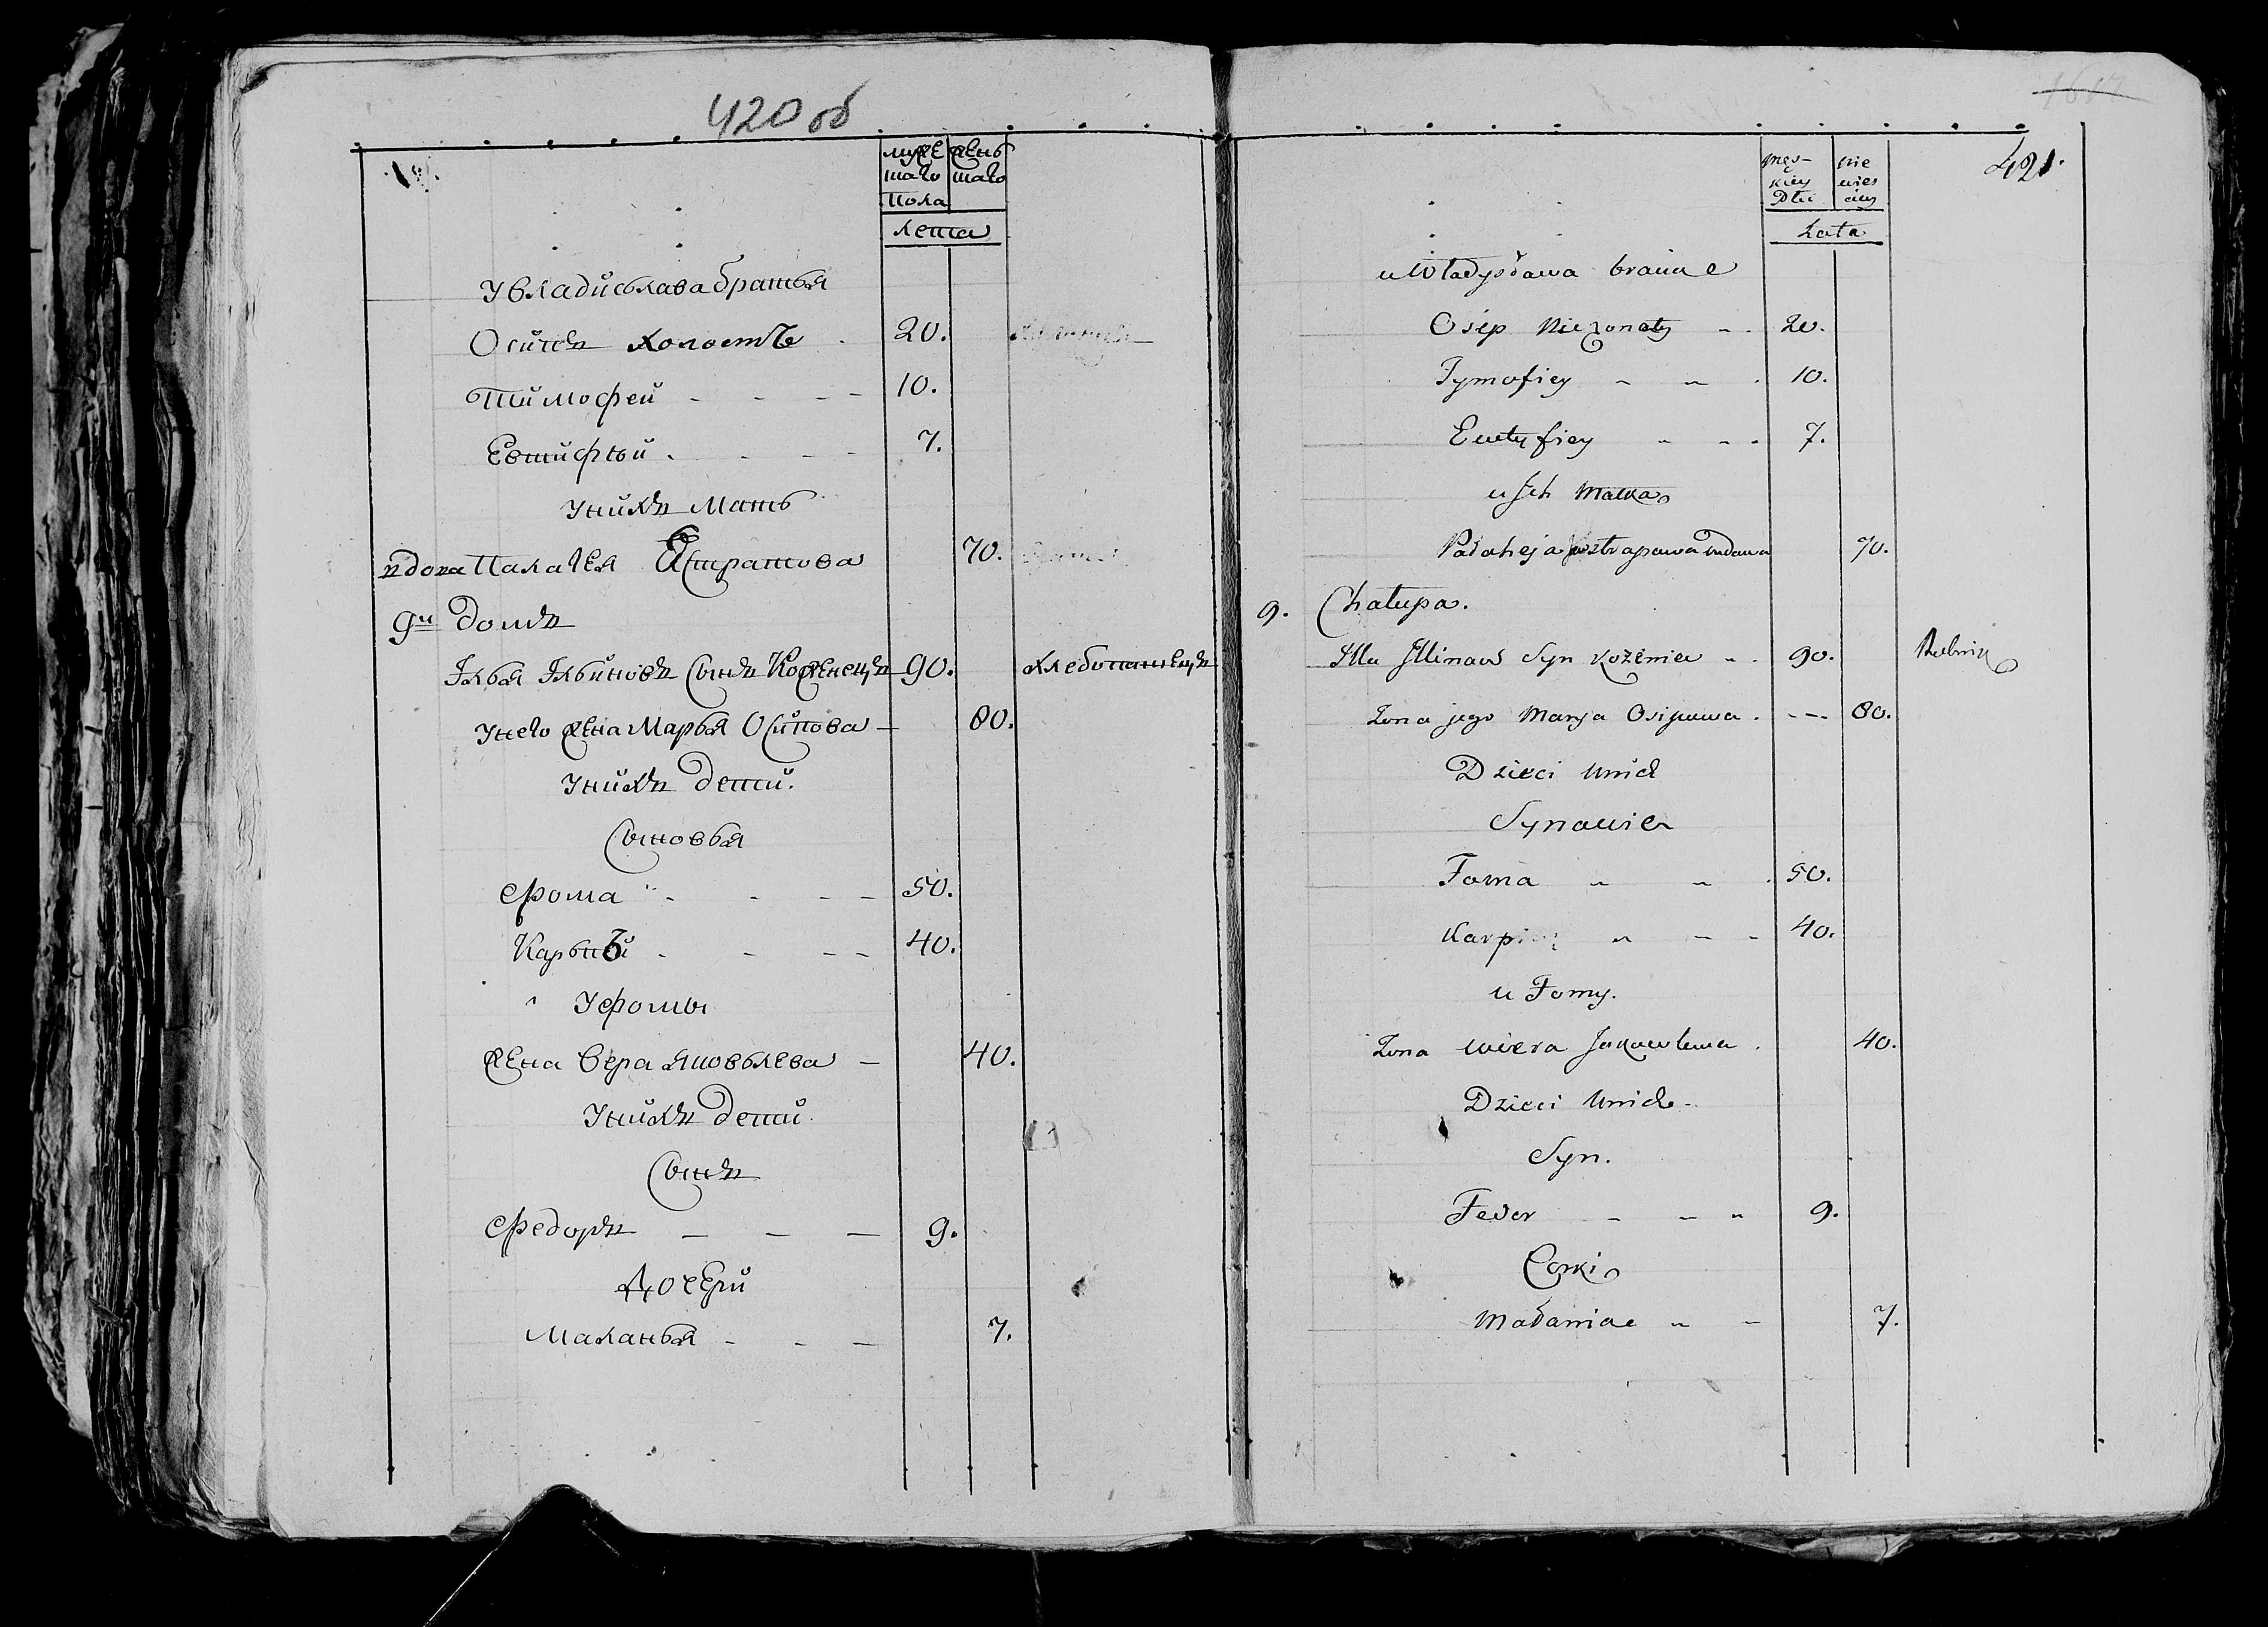 420 об
муже жень
шаго шаго
пола
лета
У Владислава братья
Осипъ холостъ 20.
Тимофей - - - - 10.
Евтифей - - - - 7.
У нихъ мать
вдова Палагея Естратова 70.
9й домъ
Илья Ильиновъ сынъ Корженецъ 90. хлебопашецъ
У него жена Марья Осипова — 80.
У нихъ дети.
Сыновья
Фома - - - - 50.
Карьпъ - - - - 40.
У Фомы
жена Вера Яковьлева — 40.
У нихъ дети.
Сынъ
Федоръ — — — 9.
Дочери
Маланья - - — 7.
421.
męs- nie
kiey wies
Płci ciey
Lata
u Władysława bracia
Osip Nieżonaty - . 20.
Tymofiey - - . 10.
Ewtyfiey - - - 7.
u Ich Matka
Pałaheja wdowa 70.
9. Chałupa.
Illa Illinow Syn - . 90. Rolnik
Żona jego Marya Osipowa . --- 80.
Dzieci u nich
Synowie
Foma - - . 50.
Karp - - - 40.
u Fomy.
Żona Wiera Jakowlewa . 40.
Dzieci u nich -
Syn.
Fedor - - - 9.
Corki
Małania - - 7.